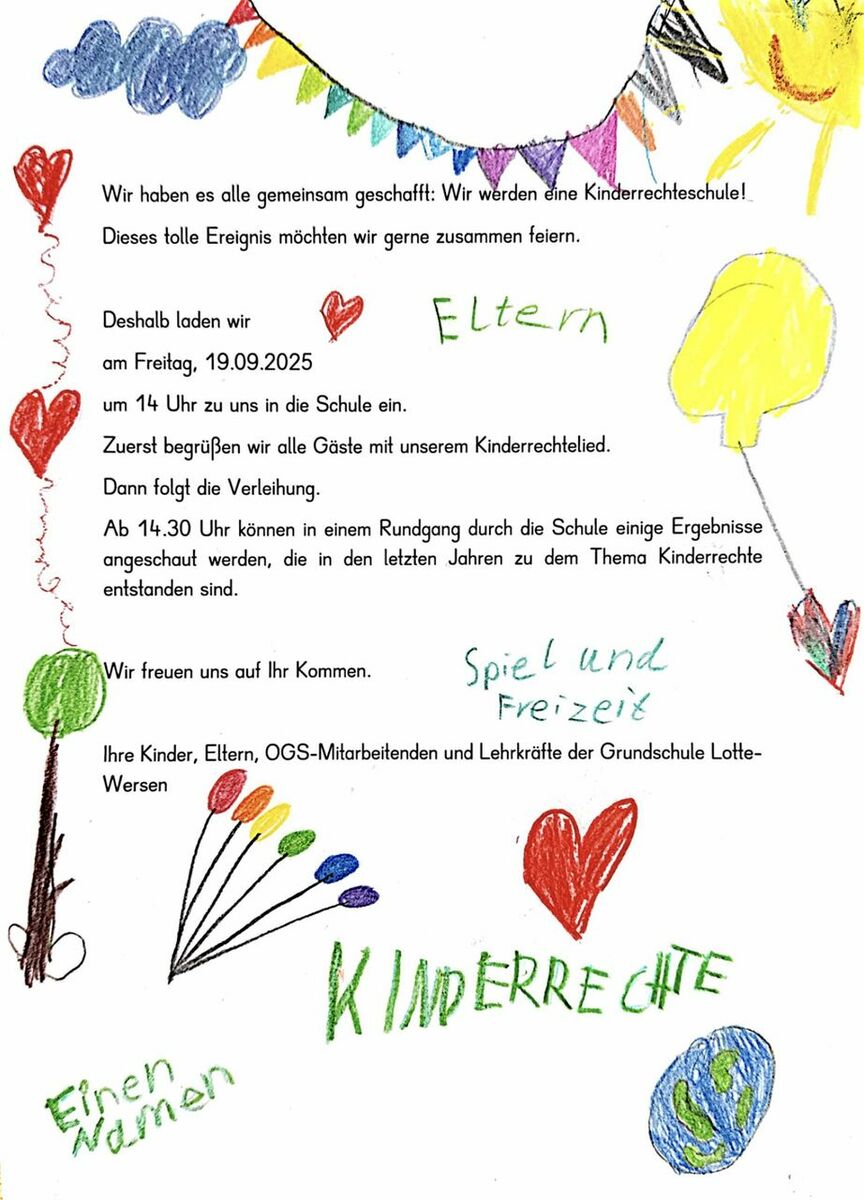 Wir haben es alle gemeinsam geschafft: Wir werden eine Kinderrechteschule!
Dieses tolle Ereignis möchten wir gerne zusammen feiern.
Deshalb laden wir
Eltern
am Freitag, 19.09.2025
um 14 Uhr zu uns in die Schule ein.
Zuerst begrüßen wir alle Gäste mit unserem Kinderrechtelied.
Dann folgt die Verleihung.
Ab 14.30 Uhr können in einem Rundgang durch die Schule einige Ergebnisse
angeschaut werden, die in den letzten Jahren zu dem Thema Kinderrechte
entstanden sind.
Wir freuen uns auf Ihr Kommen.
Spiel und
Freizeit
Ihre Kinder, Eltern, OGS-Mitarbeitenden und Lehrkräfte der Grundschule Lotte-
Wersen
KINDERRECHTE
Einen
Namen